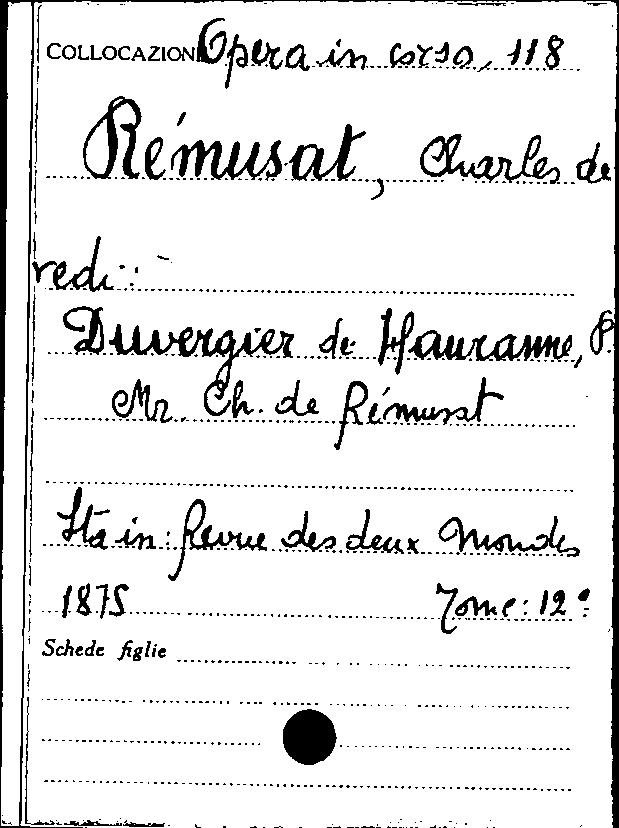 COLLOCAZIONE Opera in corso, 118
Rémusat, Charles de
vedi:
Duvergier de Hauranne, P.
Mr. Ch. de Rémusat
Sta in: Revue des deux Mondes
1875 Tome: 12°
Schede figlie